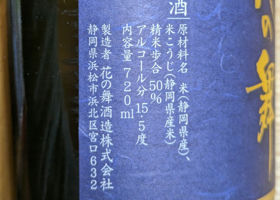 の舞
酒
原材料名 米(静岡県産)、
米こうじ(静岡県産米)
精米歩合50%
アルコール分15.5度
内容量720ml
製造者 花の舞酒造株式会社
静岡県浜松市浜北区宮口632